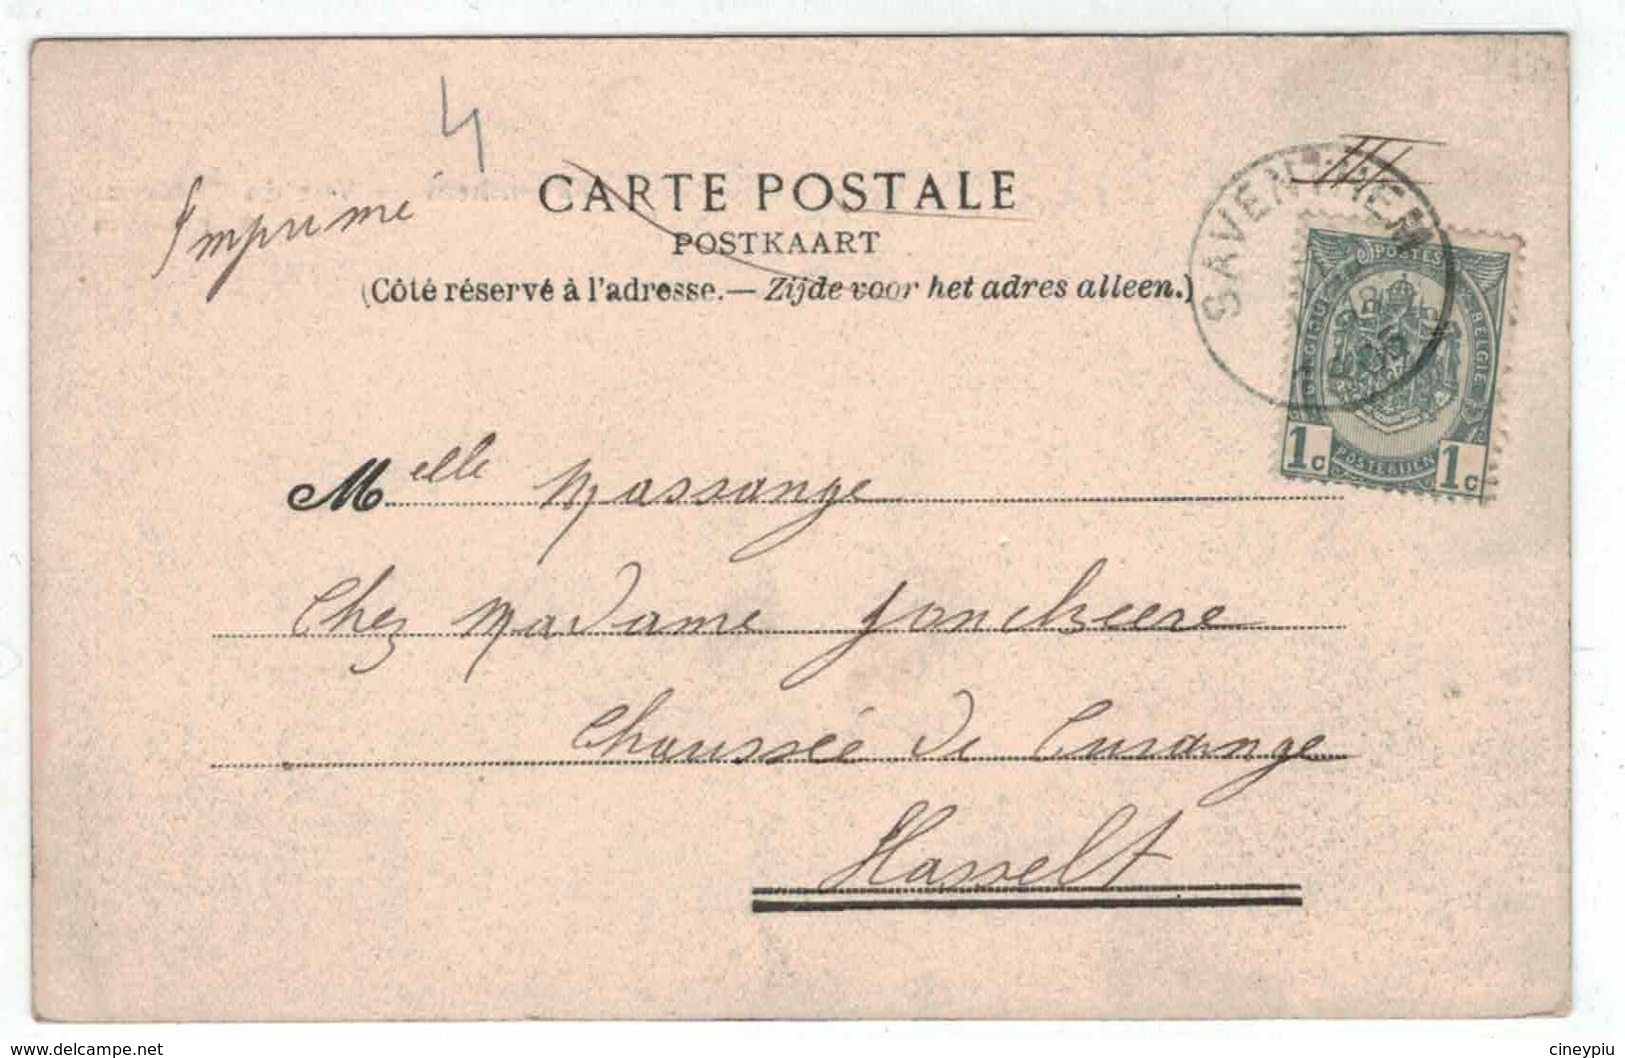 4
Imprimé
CARTE POSTALE
POSTKAART
(Côté réservé à l'adresse.— Zijde voor het adres alleen.)
SAVENTHEM
POSTES
BELGIQUE
BELGIË
POSTERIJEN
1c 1c
Melle Massange
Chez Madame Jonckheere
Chaussée de Curange
Hasselt
www.delcampe.net
cineypiu